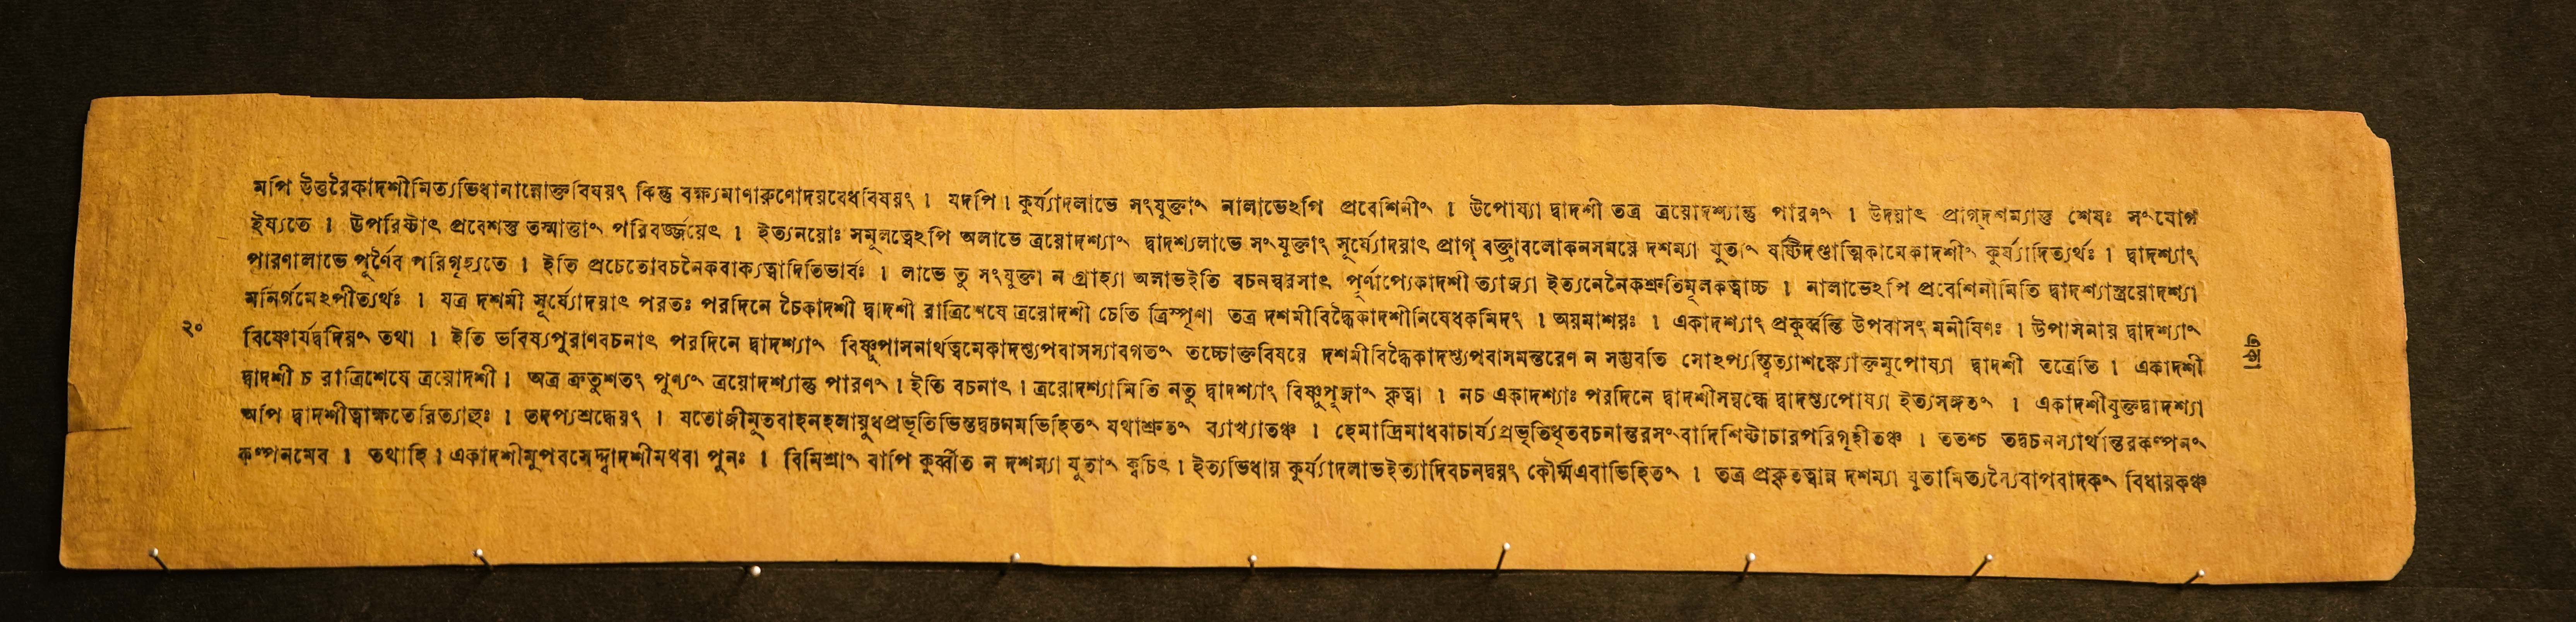 মপি উত্তরৈকাদশীমিত্যভিধানান্নোক্তবিষয়ং কিন্তু বক্ষ্যমাণারুণোদয়বেধবিষয়ং । যদপি । কুর্য্যাদলাভে সংযুক্তাং নালাভেঽপি প্রবেশিনীং । উপোষ্যা দ্বাদশী তত্র ত্রয়োদশ্যান্তু পারণং । উদয়াৎ প্রাগ্দশম্যাস্তু শেষঃ সংযোগ
ইষ্যতে । উপরিষ্টাৎ প্রবেশস্তু তস্মাত্তাং পরিবর্জ্জয়েৎ । ইত্যনয়োঃ সমূলত্বেঽপি অলাভে ত্রয়োদশ্যাং দ্বাদশ্যলাভে সংযুক্তাং সূর্য্যোদয়াৎ প্রাগ্ বক্ত্রাবলোকনসময়ে দশম্যা যুতাং ষষ্টিদণ্ডাত্মিকামেকাদশীং কুর্য্যাদিত্যর্থঃ । দ্বাদশ্যাং
পারণালাভে পূর্ণৈব পরিগৃহ্যতে । ইতি প্রচেতোবচনৈকবাক্যত্বাদিতিভাবঃ । লাভে তু সংযুক্তা ন গ্রাহ্যা অলাভইতি বচনস্বরসাৎ পূর্ণাপ্যেকাদশী ত্যাজ্যা ইত্যনেনৈকশ্রুতিমূলকত্বাচ্চ । নালাভেঽপি প্রবেশিনীমিতি দ্বাদশ্যাস্ত্রয়োদশ্যা
মনির্গমেঽপীত্যর্থঃ । যত্র দশমী সূর্য্যোদয়াৎ পরতঃ পরদিনে চৈকাদশী দ্বাদশী রাত্রিশেষে ত্রয়োদশী চেতি ত্রিস্পৃশা তত্র দশমীবিদ্ধৈকাদশীনিষেধকমিদং । অয়মাশয়ঃ । একাদশ্যাং প্রকুর্ব্বন্তি উপবাসং মনীষিণঃ । উপাসনায় দ্বাদশ্যাং
২০ বিষ্ণোর্যদ্বদিয়ং তথা । ইতি ভবিষ্যপুরাণবচনাৎ পরদিনে দ্বাদশ্যাং বিষ্ণূপাসনার্থত্বমেকাদশ্যুপবাসস্যাবগতং তচ্চোক্তবিষয়ে দশমীবিদ্ধৈকাদশ্যুপবাসমন্তরেণ ন সম্ভবতি সোঽপ্যস্ত্বিত্যাশঙ্ক্যোক্তমুপোষ্যা দ্বাদশী তত্রেতি । একাদশী
দ্বাদশী চ রাত্রিশেষে ত্রয়োদশী । অত্র ক্রতুশতং পুণ্যং ত্রয়োদশ্যান্তু পারণং । ইতি বচনাৎ । ত্রয়োদশ্যামিতি নতু দ্বাদশ্যাং বিষ্ণুপূজাং কৃত্বা । নচ একাদশ্যাঃ পরদিনে দ্বাদশীসম্বন্ধে দ্বাদশ্যুপোষ্যা ইত্যসঙ্গতং । একাদশীযুক্তদ্বাদশ্যা
অপি দ্বাদশীত্বাক্ষতেরিত্যাহুঃ । তদপ্যশ্রদ্ধেয়ং । যতোজীমূতবাহনহলায়ুধপ্রভৃতিভিস্তদ্বচনমভিহিতং যথাশ্রুতং ব্যাখ্যাতঞ্চ । হেমাদ্রিমাধবাচার্য্যপ্রভৃতিধৃতবচনান্তরসংবাদিশিষ্টাচারপরিগৃহীতঞ্চ । ততশ্চ তদ্বচনস্যার্থান্তরকল্পনং
কল্পনমেব । তথাহি । একাদশীমুপবসেদ্দ্বাদশীমথবা পুনঃ । বিমিশ্রাং বাপি কুর্ব্বীত ন দশম্যা যুতাং ক্বচিৎ । ইত্যভিধায় কুর্য্যাদলাভইত্যাদিবচনদ্বয়ং কৌর্ম্মএবাভিহিতং । তত্র প্রকৃতত্বান্ন দশম্যা যুতামিত্যস্যৈবাপবাদকং বিধায়কঞ্চ